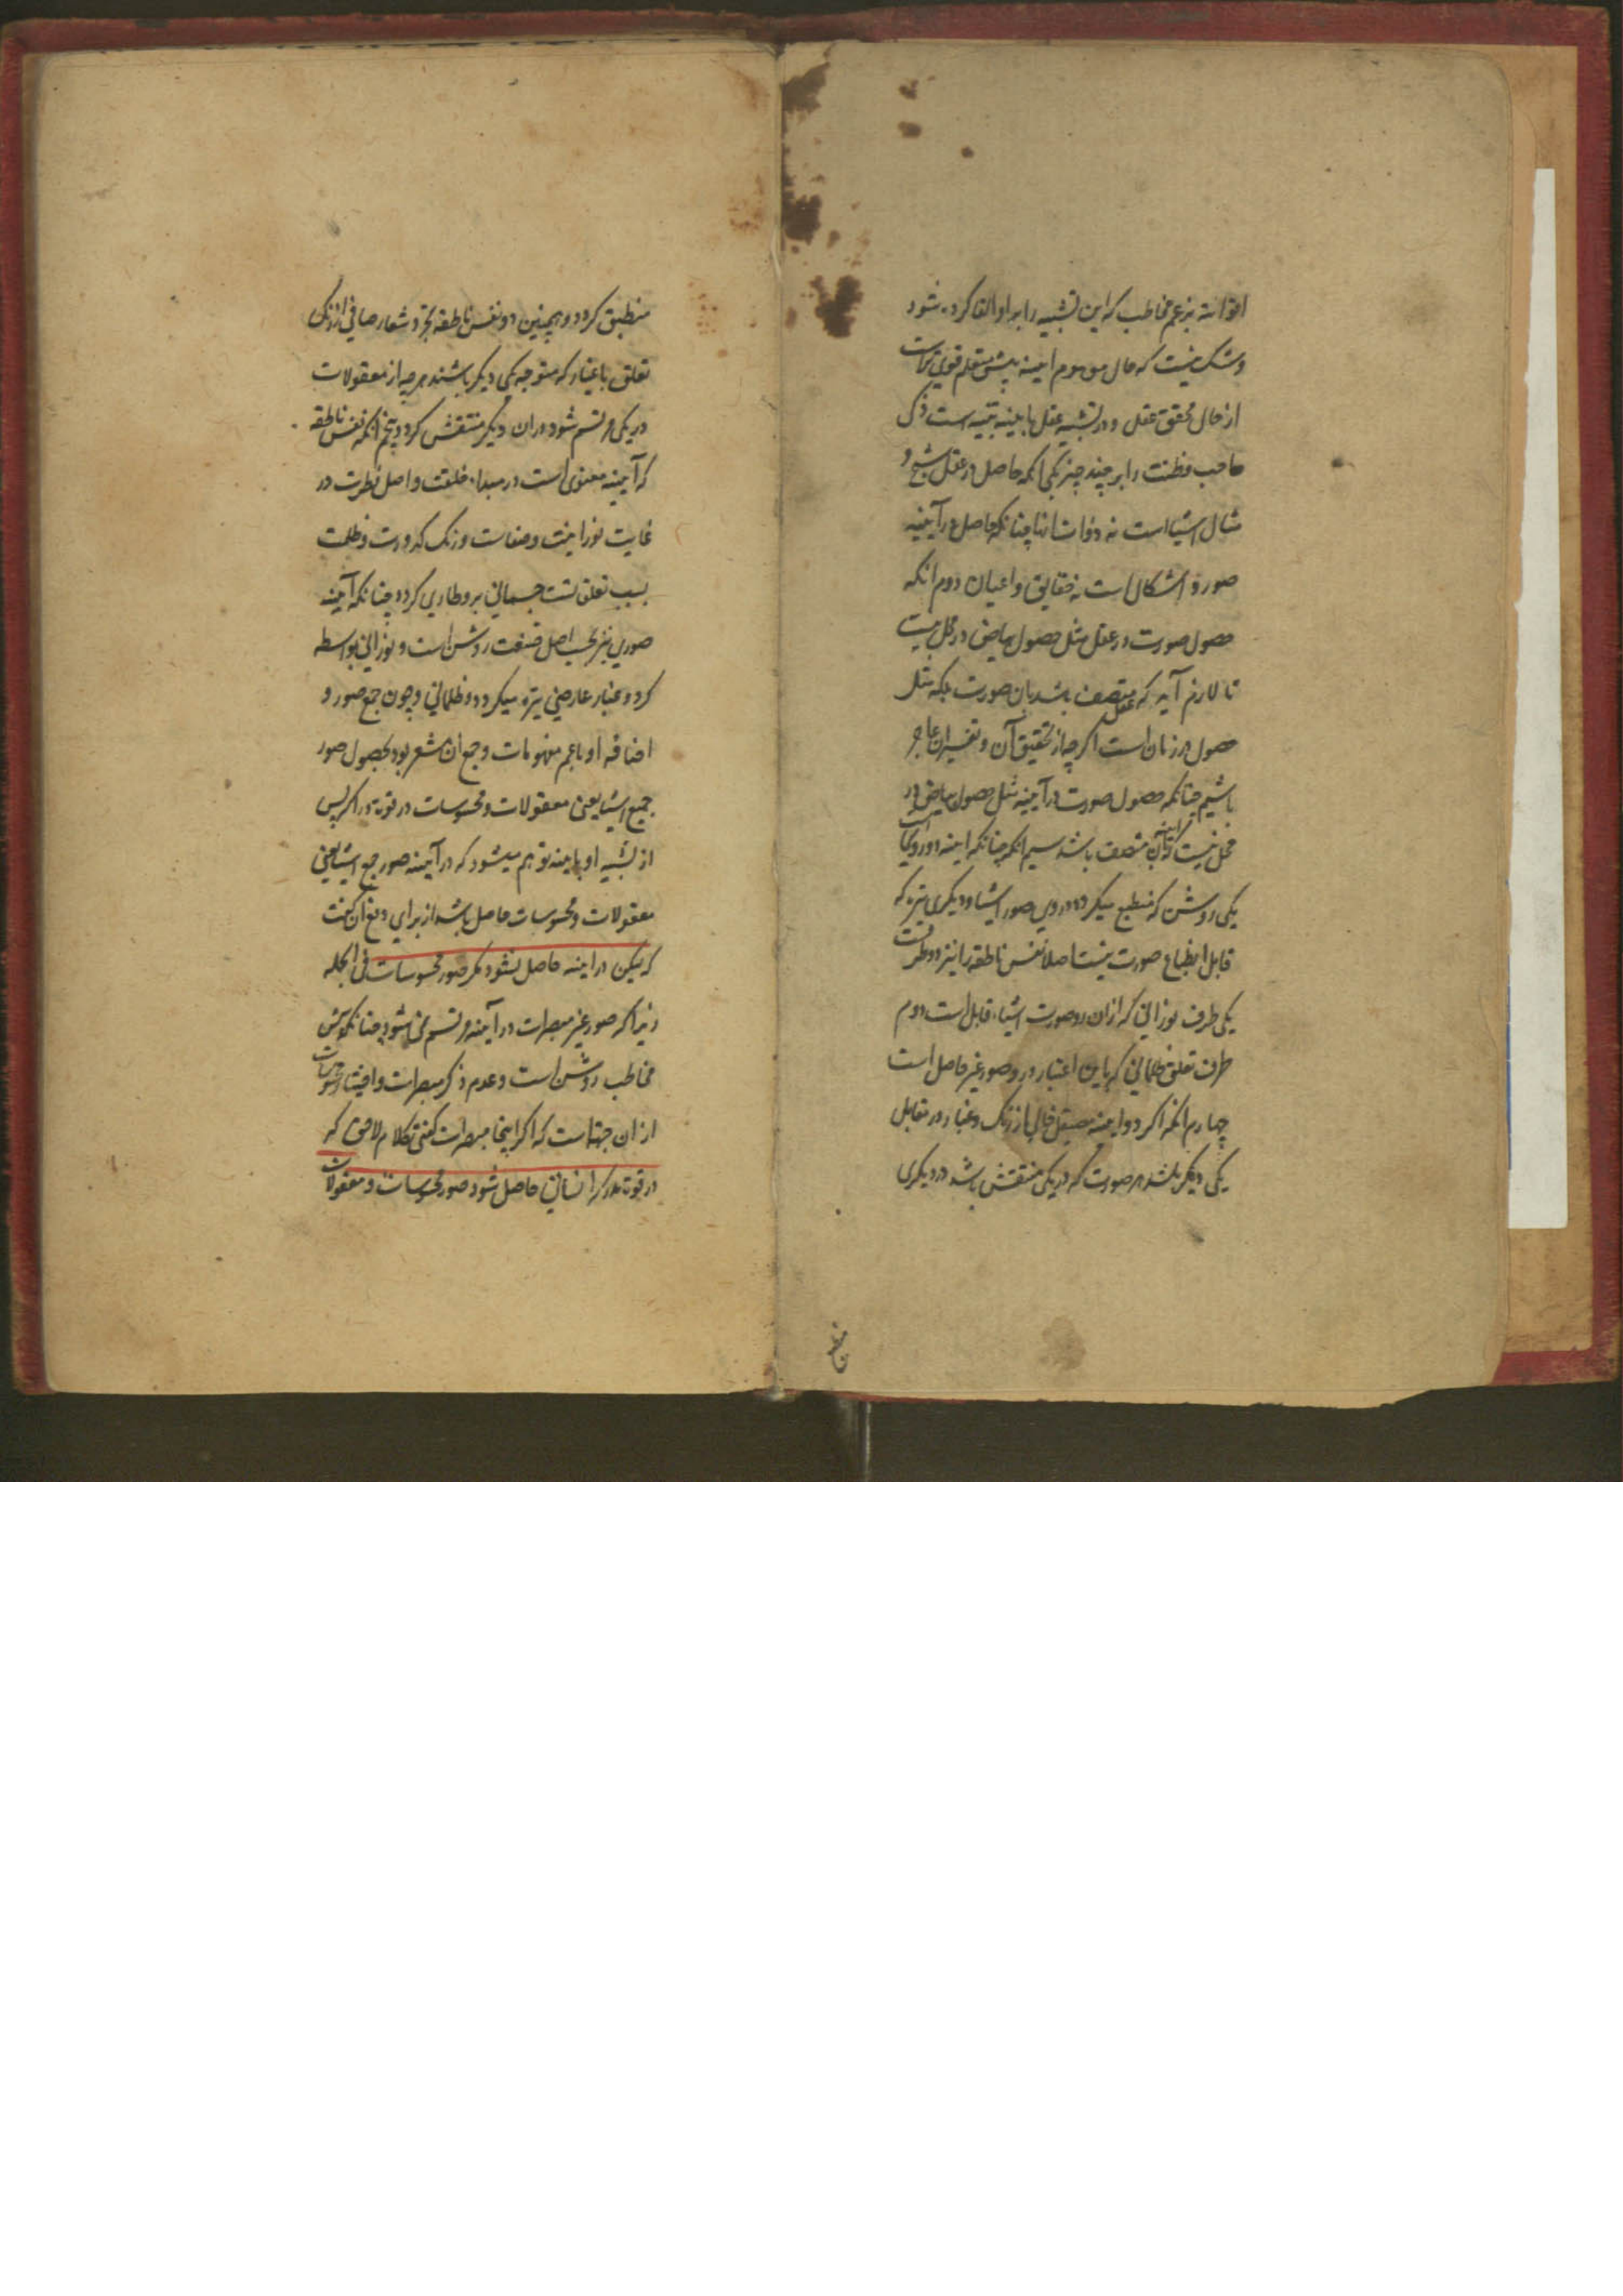 اقوا است بزعم مخاطب که این تشبیه را برو القا کرده شود
و شک نیست که حال موهوم آینه پیش متعلم قوی‌تر است
از حال محقق عقل و در تشبیه عقل بآیینه تنبیه است ذکی
صاحب فطنت را بر چند چیز یکی آنکه حاصل در عقل شبح و
مثال اشیا است نه ذوات آنها چنانکه حاصل در آیینه
صور و اشکال است نه حقایق و اعیان دوم آنکه
حصول صورت در عقل مثل حصول بیاض در محل نیست
تا لازم آید که عقل متصف باشد بآن صورت بلکه مثل
حصول در زمان است اگرچه از تحقیق آن و تفسیر آن عاجز
باشیم چنانکه حصول صورت در آیینه مثل حصول بیاض در
محل نیست که آینه بآن متصف باشد سیم آنکه چنانکه آینه دو روی است
یکی روشن که منطبع میگردد در وی صور اشیا و دیگری تیره که
قابل انطباع صورت نیست اصلا نفس ناطقه را نیز دو طرفست
یکی طرف نورانی که از آن رو صورت اشیاء قابل است دوم
طرف تعلق ظلمانی که باین اعتبار در و صور غیر حاصل است
چهارم آنکه اگر دو آینه صیقل خالی از زنگ و غبار در مقابل
یکی دیگر باشد هر صورت که در یکی منتقش باشد در دیگری
منطبق
منطبق گردد و همچنین دو نفس ناطقه تجرد شعار صافی از زنگ
تعلق باعتبار که متوجه یکی دیگر باشند هرچه از معقولات
در یکی مرتسم شود در آن دیگر منتقش گردد پنجم آنکه نفس ناطقه
که آیینه معنوی است در مبداء خلقت و اصل فطرت در
غایت نورانیت و صفاست و زنگ کدورت و ظلمت
بسبب تعلق نشئت جسمانی برو طاری گردد چنانکه آیینه
صوری نیز بحسب اصل صنعت روشن است و نورانی بواسطه
گرد و غبار عارضی تیره میگردد و ظلمانی و چون جمع صور و
اضافه او باعم مفهومات و جمع آن مشعر بود بحصول صور
جمیع اشیا یعنی معقولات و محسوسات در قوة دراکه پس
از تشبیه او بآینه توهم میشود که در آیینه صور جمع اشیا یعنی
معقولات و محسوسات حاصل باشد از برای دفع آن گفت
که لیکن در آینه حاصل نشود مگر صور محسوسات فی الجمله
زیرا که صور غیر مبصرات در آیینه مرتسم نمی‌شود چنانکه پیش
مخاطب روشن است و عدم ذکر مبصرات و اختیار محسوسات
از آن جهة است که اگر اینجا مبصرات گفتی کلام لاحق که
در قوة مدرکه انسانی حاصل شود صور محسوسات و معقولات